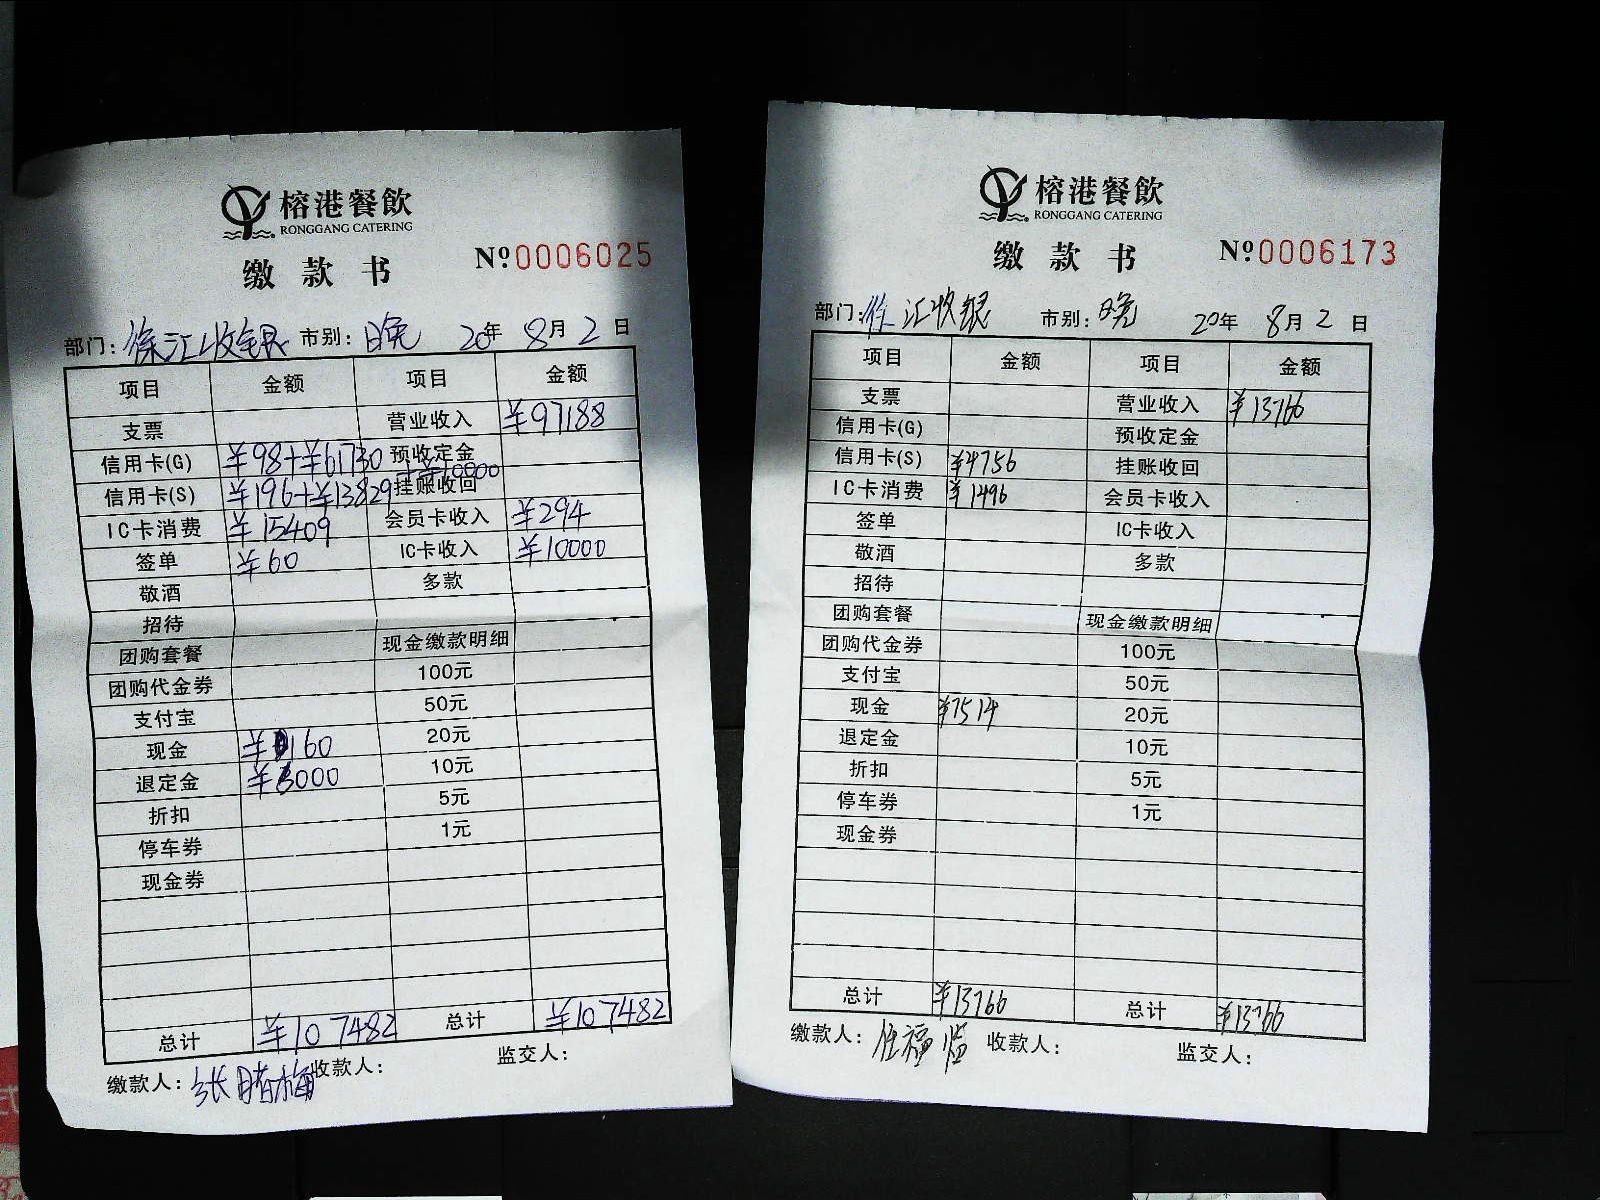 榕港餐飲
RONGGANG CATERING
缴款书
Nº0006025
部门：徐汇收银 市别：晚 20年 8月 2日
项目 金额 项目 金额
支票 营业收入 ¥97188
信用卡(G) ¥98+¥61730 预收定金
+¥10000
信用卡(S) ¥196+¥13829 挂账收回
IC卡消费 ¥15409 会员卡收入 ¥294
签单 ¥60 IC卡收入 ¥10000
敬酒 多款
招待
团购套餐 现金缴款明细
团购代金券 100元
支付宝 50元
现金 ¥160 20元
退定金 ¥6000 10元
折扣 5元
停车券 1元
现金券
总计 ¥107482 总计 ¥107482
缴款人：张 梅 收款人： 监交人：
榕港餐飲
RONGGANG CATERING
缴款书
Nº0006173
部门：徐汇收银 市别：晚 20年 8月 2日
项目 金额 项目 金额
支票 营业收入 ¥13766
信用卡(G) 预收定金
信用卡(S) ¥4756 挂账收回
IC卡消费 ¥1496 会员卡收入
签单 IC卡收入
敬酒 多款
招待
团购套餐 现金缴款明细
团购代金券 100元
支付宝 50元
现金 ¥7514 20元
退定金 10元
折扣 5元
停车券 1元
现金券
总计 ¥13766 总计 ¥13766
缴款人：任福 收款人： 监交人：